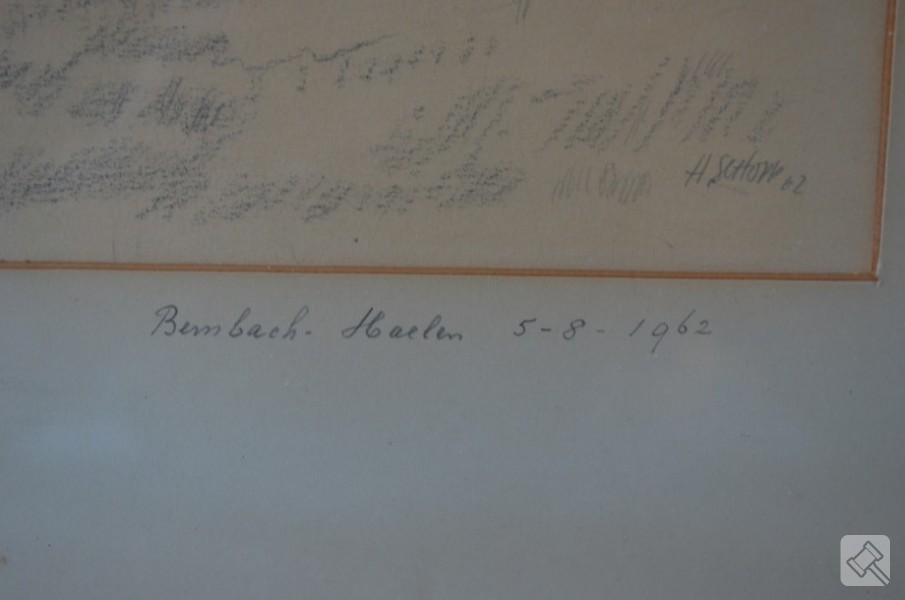 H. Schorr 62
Bernbach - Haelen 5-8-1962